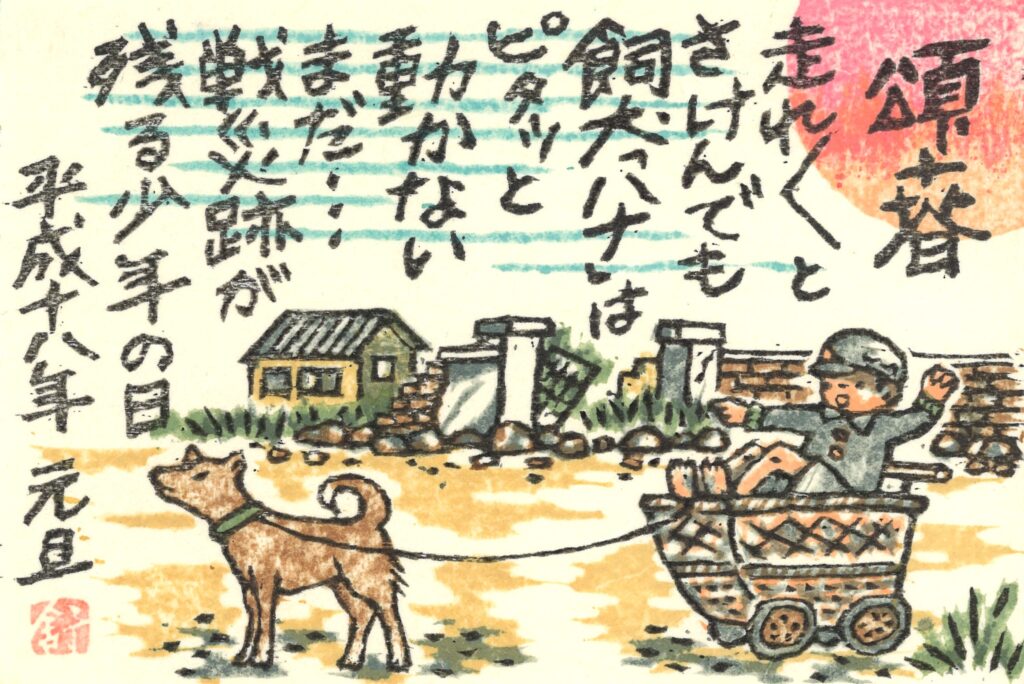 頌春
走れ〱と
さけんでも
飼犬「ハナ」は
ピタッと
動かない
まだ……
戦災跡が
残る少年の日
平成十八年 元旦